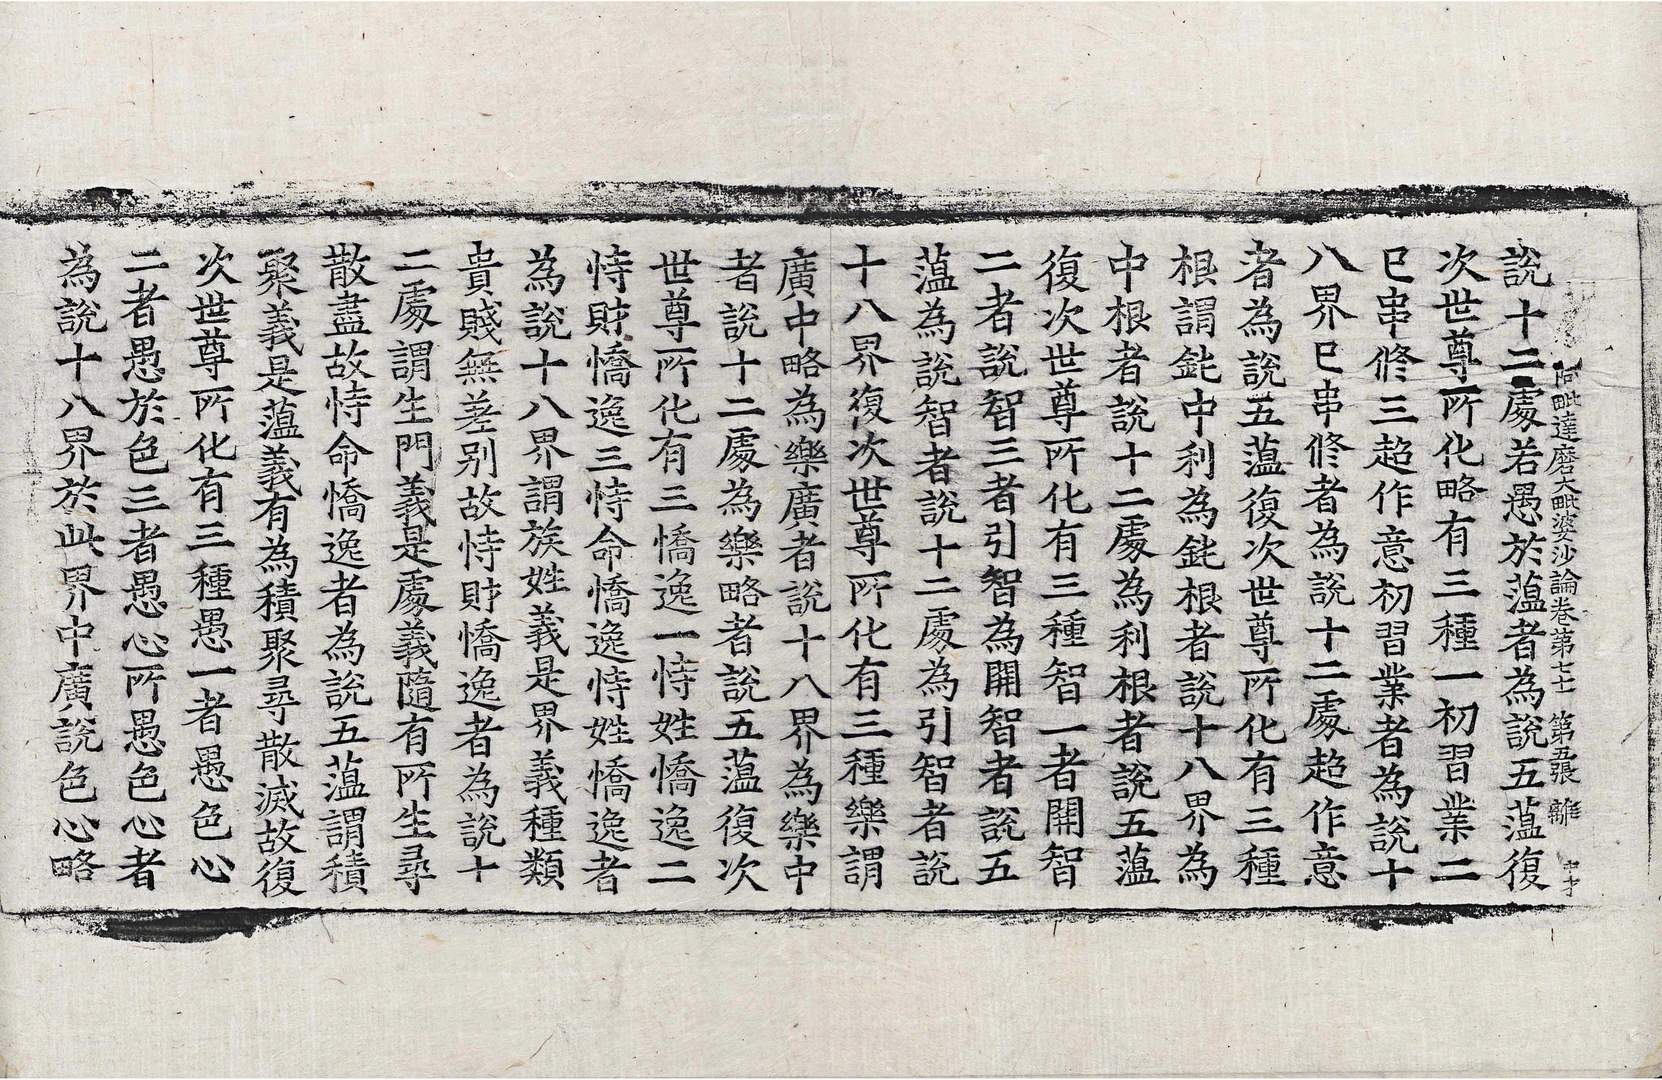 阿毗達磨大毗婆沙論卷第七十一 第五張 離
說十二處若愚於薀者為說五薀復
次世尊所化略有三種一初習業二
已串修三超作意初習業者為說十
八界已串修者為說十二處超作意
者為說五薀復次世尊所化有三種
根謂鈍中利為鈍根者說十八界為
中根者說十二處為利根者說五薀
復次世尊所化有三種智一者開智
二者說智三者引智為開智者說五
薀為說智者說十二處為引智者說
十八界復次世尊所化有三種樂謂
廣中略為樂廣者說十八界為樂中
者說十二處為樂略者說五薀復次
世尊所化有三憍逸一恃姓憍逸二
恃財憍逸三恃命憍逸恃姓憍逸者
為說十八界謂族姓義是界義種類
貴賤無差別故恃財憍逸者為說十
二處謂生門義是處義隨有所生尋
散盡故恃命憍逸者為說五薀謂積
聚義是薀義有為積聚尋散滅故復
次世尊所化有三種愚一者愚色心
二者愚於色三者愚心所愚色心者
為說十八界於此界中廣說色心略